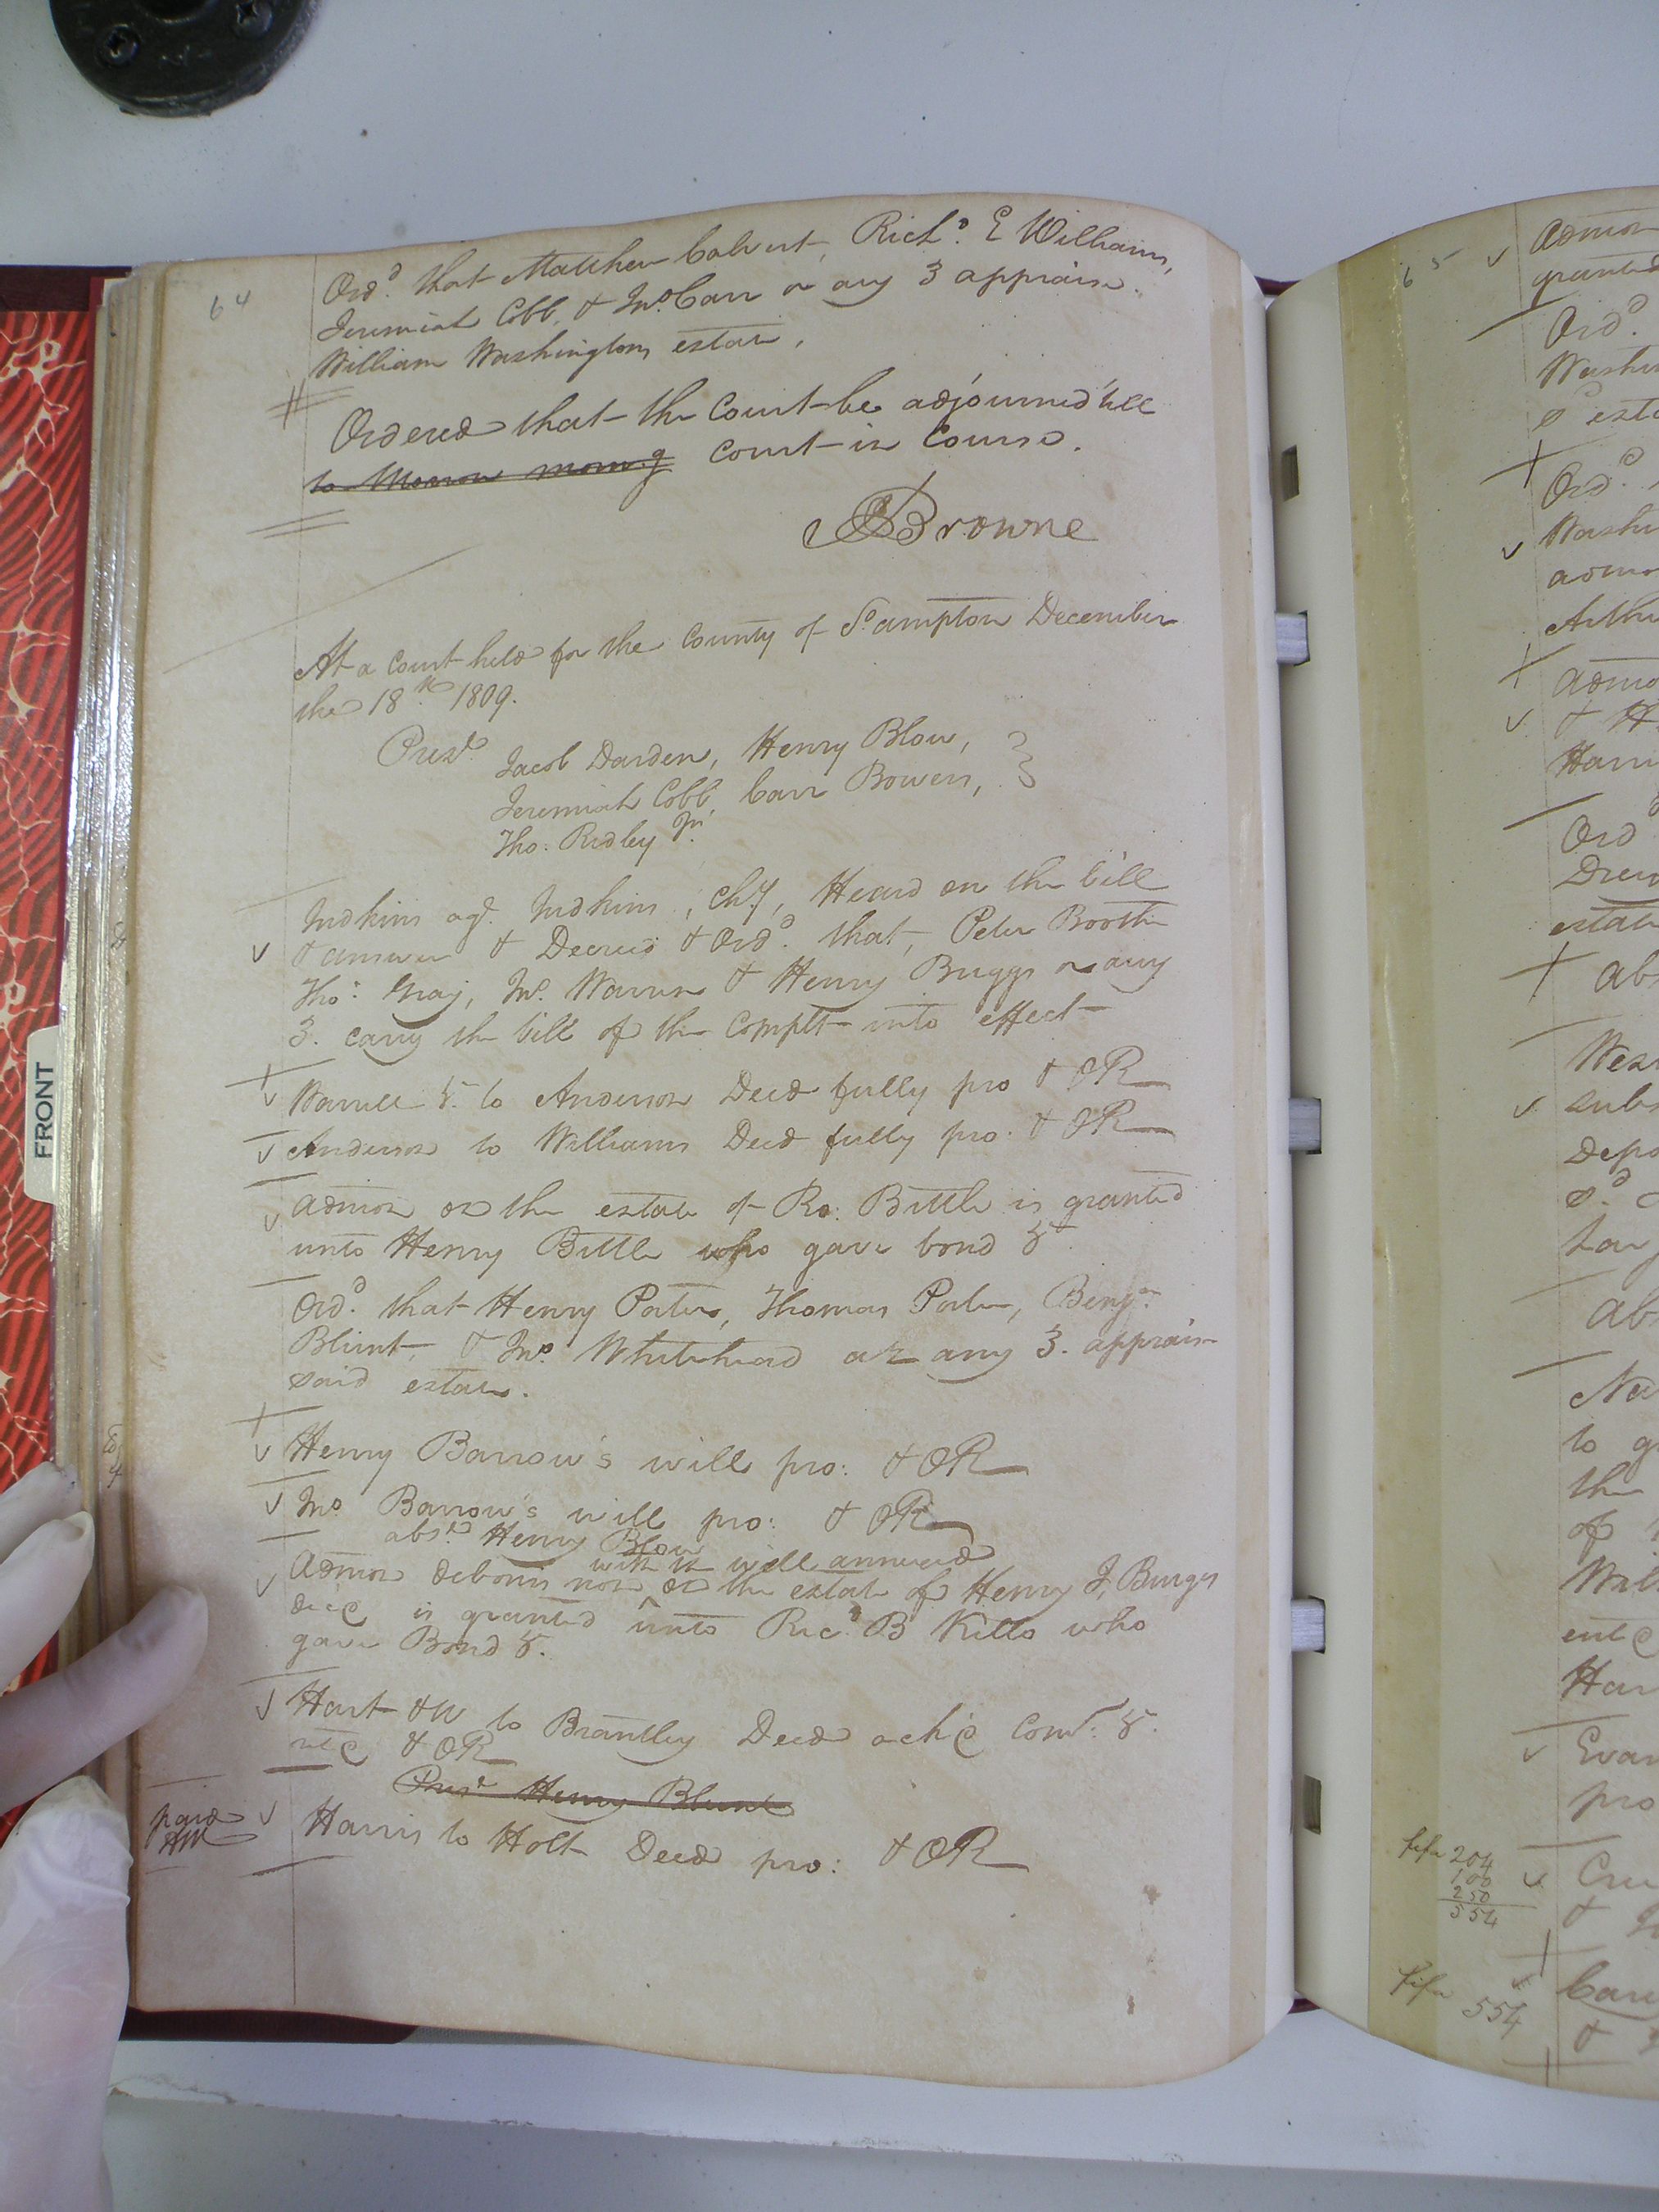 64
Ord.d that Matthew Calvert, Rich.d E Williams,
Jeremiah Cobb, & Jno. Carr or any 3 appraise
William Washingtons estate.
Ordered that the Court be adjourned till
to Morrow morn.g Court in Course.
Browne
At a Court held for the County of S.ampton December
the 18.th 1809.
Pres.t Jacob Darden, Henry Blow,
Jeremiah Cobb, Carr Bowers,
Tho. Ridley Jr.
Judkins ag.t Judkins, Ch.y, Heard on the bill
& answer & Decreed & Ord.d that, Peter Booth
Tho.s Gray, Jno. Warren & Henry Briggs or any
3. carry the bill of the Complt into effect
Barrell &. to Anderson Deed fully pro & OR
Anderson to Williams Deed fully pro. & OR
Admon on the estate of Ro. Bittle is granted
unto Henry Bittle who gave bond &
Ord.d that Henry Porter, Thomas Porter, Benj.n
Blunt, & Jno. Whitehead or any 3. appraise
said estate.
Henry Barrow's will pro: & OR
Jno Barrow's will pro: & OR
abs.t Henry Blow
with the will annexed
Admon debonis non on the estate of Henry J, Burges
dec is granted unto Ric.d B Kello who
gave Bond &.
Hart & W to Brantley Deed ack'd Com.n: &.
ret'd & OR
Pres.t Henry Blunt
paid
Harris to Holt Deed pro: & OR
65
Admon
granted
Ord.d
Washi
s.d esta
Ord.d
Washi
admo
Arthu
Admo
& H
Harri
Ord
Drew
estate
Abs
West
subs
Depo
s.d
Abs
to g
the
of
Will
Har
Evan
pro
fifa 204
100
250
554
&
fifa
554
&
FRONT